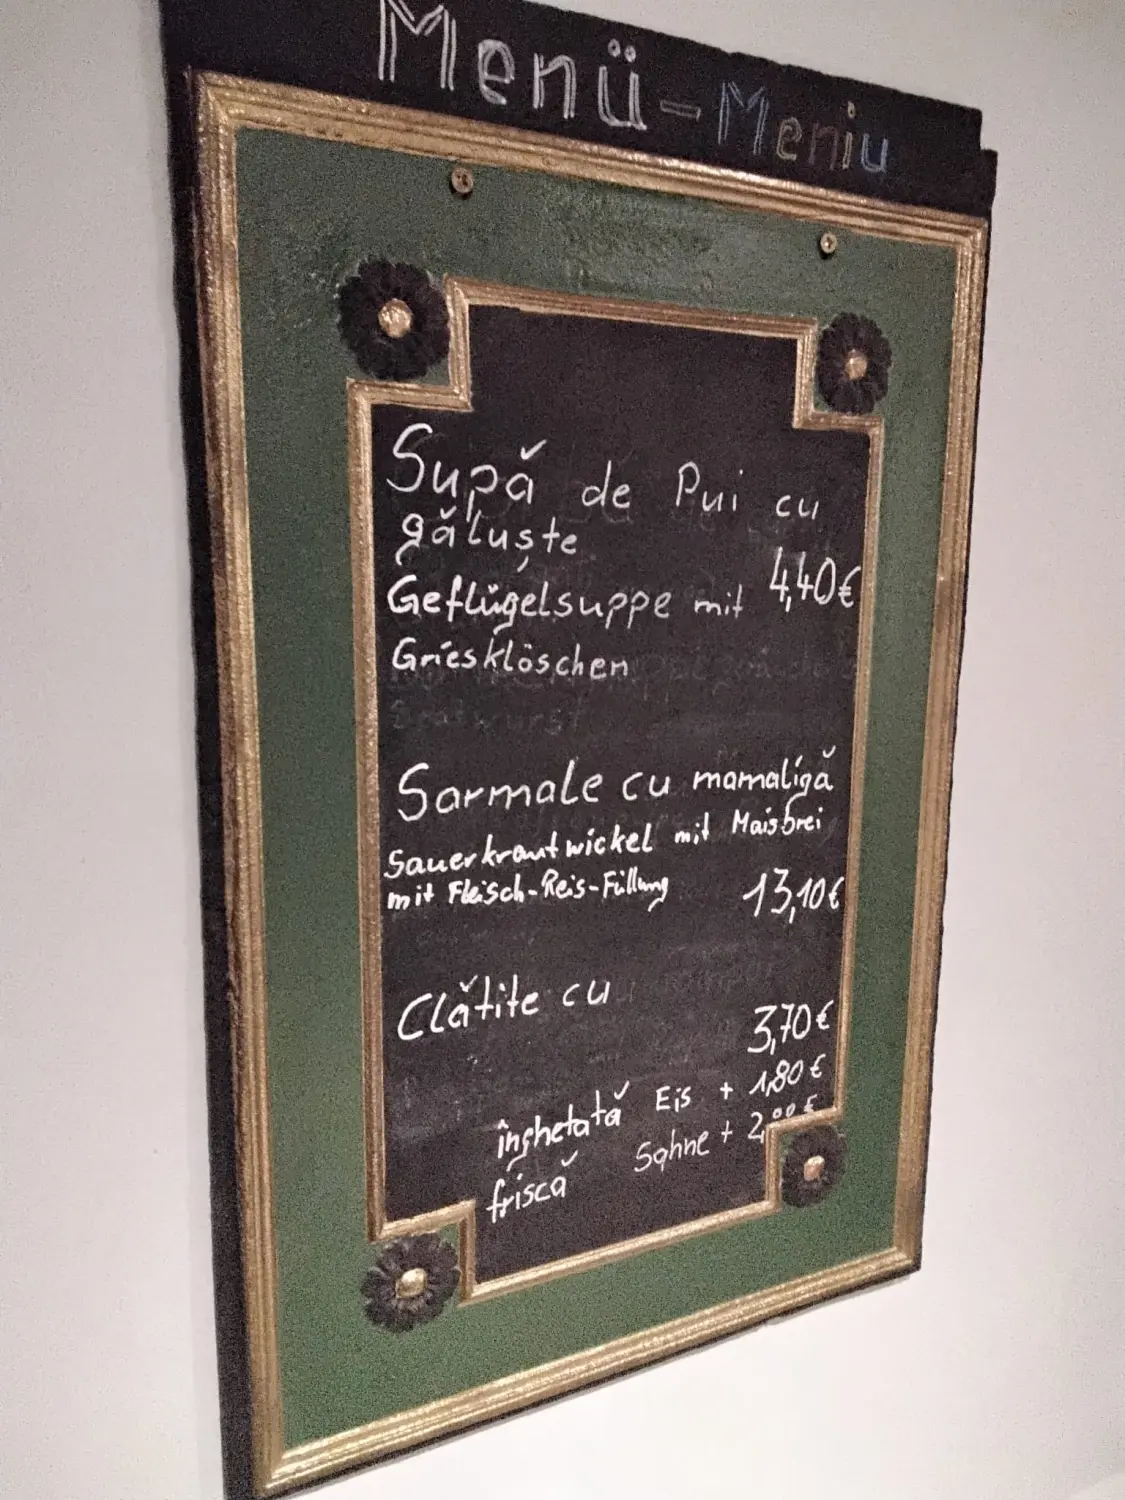 Menü-Meniu
Supă de Pui cu
găluște
4,40€
Geflügelsuppe mit
Griesklöschen
Sarmale cu mamaligă
Sauerkrautwickel mit Maisbrei
mit Fleisch-Reis-Füllung 13,10€
Clătite cu
3,70€
înghetată Eis + 1,80€
frișcă Sahne + 2,00€